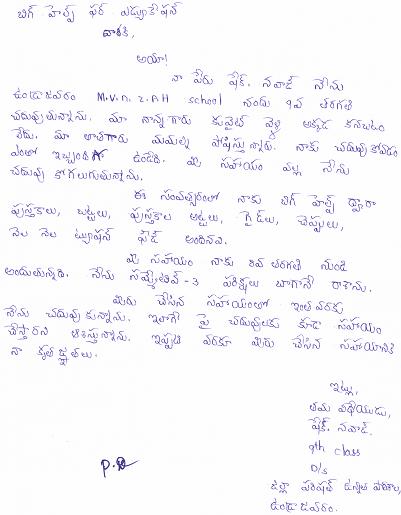 బిగ్ హెల్ప్ ఫర్ ఎడ్యుకేషన్
వారికి,
అయ్యా!
నా పేరు షేక్. నవాజ్ నేను
ఉండ్రాజవరం M.V.N.Z.P.H school నందు 9వ తరగతి
చదువుతున్నాను. మా నాన్నగారు కువైట్ వెళ్లి అక్కడ కనబడటం
లేదు. మా తాతగారు మమ్మల్ని పోషిస్తున్నారు. నాకు చదువుకోవడం
ఎంతో ఇబ్బందిగా ఉండేది. మీ సహాయం వల్ల నేను
చదువు కోగలుగుతున్నాను.
ఈ సంవత్సరంలో నాకు బిగ్ హెల్ప్ ద్వారా
పుస్తకాలు, బట్టలు, పుస్తకాల అట్టలు, గైడ్‌లు, చెప్పులు,
నెల నెల ట్యూషన్ ఫీజ్ అందినవి.
మీ సహాయం నాకు 8వ తరగతి నుండి
అందుతున్నది. నేను సమ్మేటివ్-3 పరీక్షలు బాగానే రాశాను.
మీరు చేసిన సహాయంతో ఇంత వరకు
నేను చదువుకున్నాను. ఇలాగే పై చదువులకు కూడా సహాయం
చేస్తారని ఆశిస్తున్నాను. ఇప్పటి వరకూ మీరు చేసిన సహాయానికి
నా కృతజ్ఞతలు.
ఇట్లు,
తమ విధేయుడు,
షేక్. నవాజ్.
9th class
జిల్లా పరిషత్ ఉన్నత పాఠశాల,
ఉండ్రాజవరం.